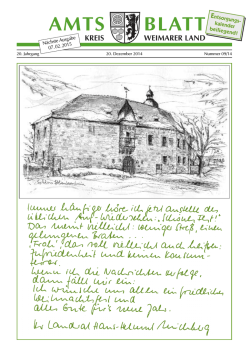 AMTSBLATT
KREIS WEIMARER LAND
Nächste Ausgabe
07.02.2015
Entsorgungs-
kalender
beiliegend!
20. Jahrgang 20. Dezember 2014 Nummer 09/14
Immer häufiger höre ich jetzt anstelle des
üblichen Auf-Wiedersehen: „Schönes Fest!“
Das meint vielleicht: wenig Streß, einen
gelungenen Braten...
„Froh“, das soll vielleicht auch heißen:
Zufriedenheit und keinen Konsum-
terror.
Wenn ich die Nachrichten verfolge,
dann fällt mir ein:
Ich wünsche uns allen ein friedliches
Weihnachtsfest und
alles Gute für's neue Jahr.
Ihr Landrat Hans-Helmut Münchberg